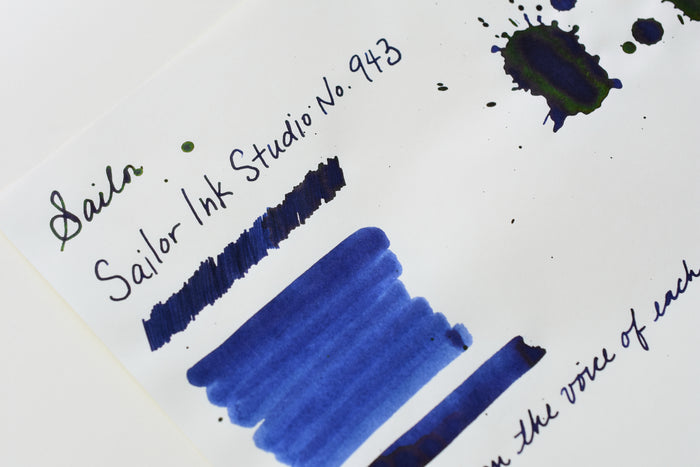 Sailor
Sailor Ink Studio No. 943
the voice of each